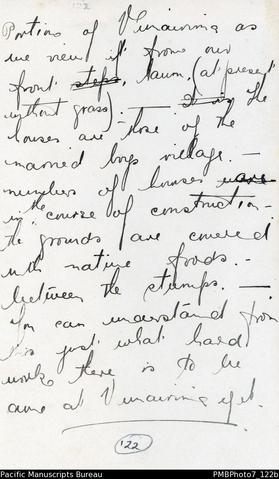 122
Portion of Vunairima as
we view it from our
front steps, lawn, (at present
without grass). — It is the
houses are those of the
married boys village. —
numbers of houses are
in the course of construction -
the grounds are covered
with native foods. -
between the stumps. —
You can understand from
this just what hard
work there is to be
done at Vunairima yet.
122
Pacific Manuscripts Bureau
PMBPhoto7_122b